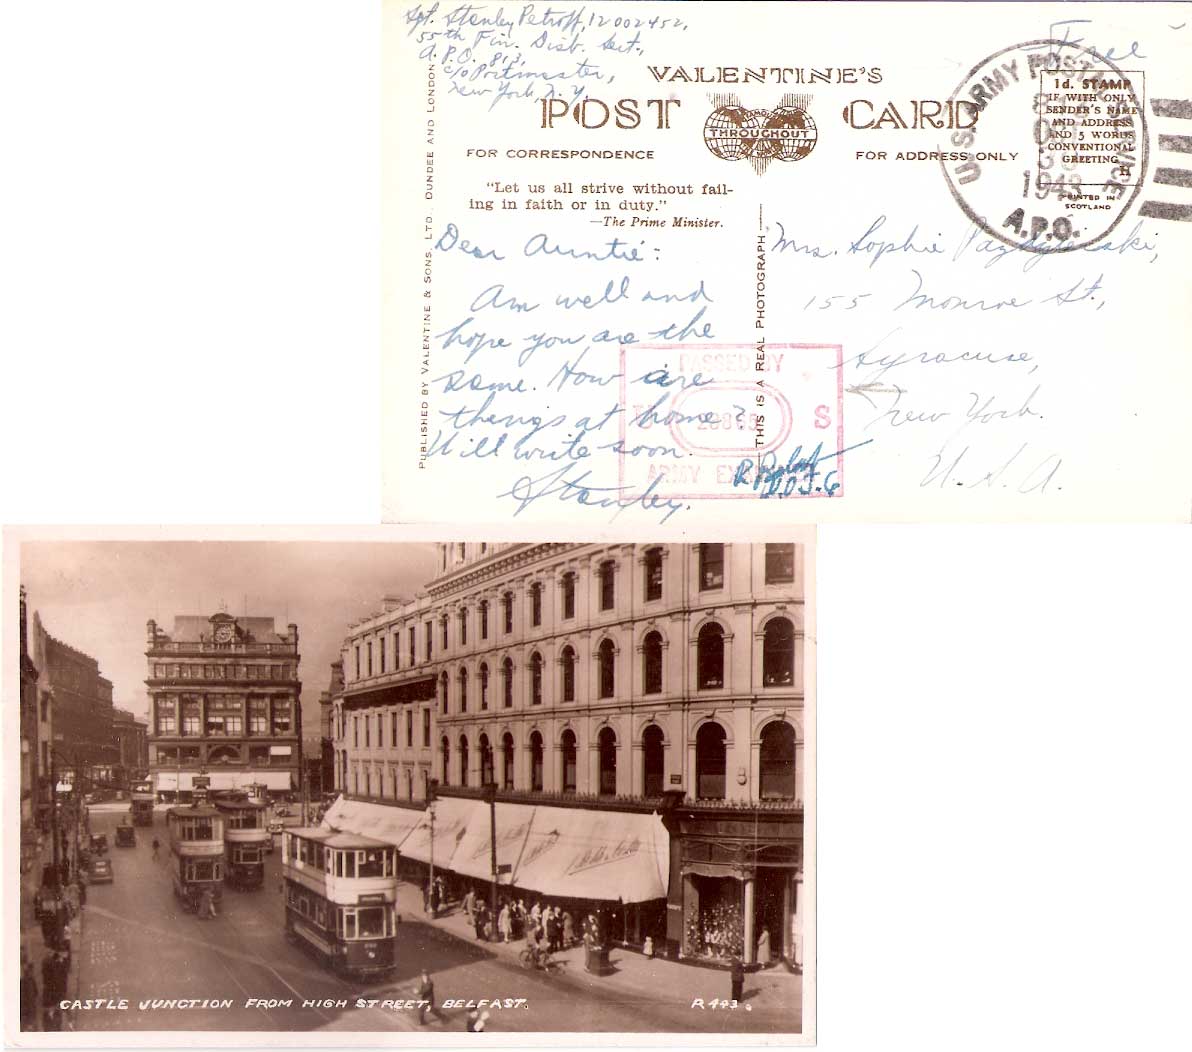 Sgt. Stanley Petroff, 12002452,
55th Fin. Disb. Sect.,
A.P.O. 813,
c/o Postmaster,
New York N.Y.
Free
VALENTINE'S
POST CARD
THROUGHOUT
FOR CORRESPONDENCE
FOR ADDRESS ONLY
U.S. ARMY POSTAL SERVICE
1943
A.P.O.
1d. STAMP
IF WITH ONLY
SENDER'S NAME
AND ADDRESS
AND 5 WORDS
CONVENTIONAL
GREETING
H
PRINTED IN
SCOTLAND
"Let us all strive without fail-
ing in faith or in duty."
—The Prime Minister.
PUBLISHED BY VALENTINE & SONS, LTD. DUNDEE AND LONDON
THIS IS A REAL PHOTOGRAPH
Dear Auntie:
Am well and
hope you are the
same. How are
things at home?
Will write soon.
Stanley.
Mrs. Sophie
155 Monroe St.,
Syracuse,
New York.
U.S.A.
PASSED BY
U 28865 S
ARMY EXAMINER
CASTLE JUNCTION FROM HIGH STREET, BELFAST.
R 443.